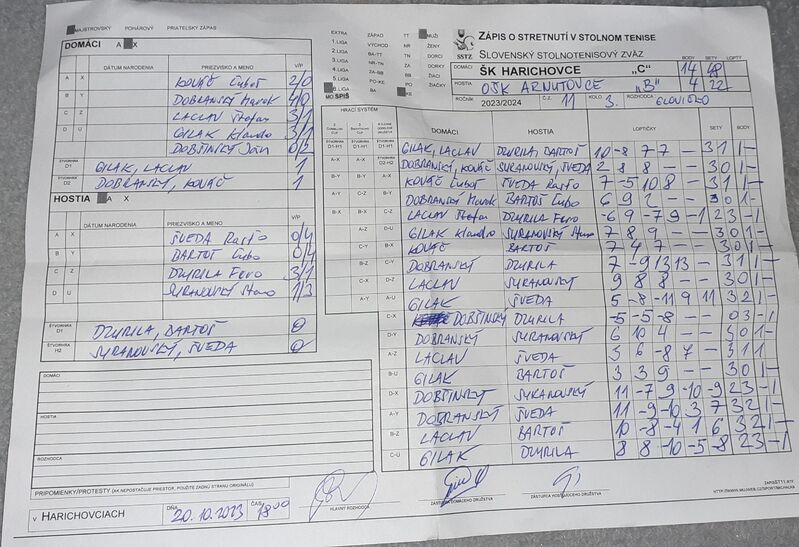 MAJSTROVSKÝ POHÁROVÝ PRIATEĽSKÝ ZÁPAS
DOMÁCI A X
DÁTUM NARODENIA PRIEZVISKO A MENO V/P
A X KOVÁČ Ľuboš 2/0
B Y DOBRANSKÝ Marek 4/0
C Z LACLAV Štefan 3/1
D U GILAK Klaudio 3/1
DOBŠINSKÝ Ján 0/2
ŠTVORHRA D1 GILAK, LACLAV 1
ŠTVORHRA D2 DOBRANSKÝ, KOVÁČ 1
HOSTIA A X
DÁTUM NARODENIA PRIEZVISKO A MENO V/P
A X ŠVEDA Rasťo 0/4
B Y BARTOŠ Ľubo 0/4
C Z DZURILA Fero 3/1
D U SURANOVSKÝ Stano 1/3
ŠTVORHRA DZURILA, BARTOŠ 0
ŠTVORHRA H2 SURANOVSKÝ, ŠVEDA 0
DOMÁCI
HOSTIA
ROZHODCA
PRIPOMIENKY/PROTESTY (AK NEPOSTAČUJE PRIESTOR, POUŽITE ZADNÚ STRANU ORIGINÁLU)
V HARICHOVCIACH DŇA 20.10.2023 ČAS 18:00
HLAVNÝ ROZHODCA
ZÁSTUPCA DOMÁCEHO DRUŽSTVA
ZÁSTUPCA HOSŤUJÚCEHO DRUŽSTVA
EXTRA ZÁPAD TT MUŽI
1. LIGA VÝCHOD NR ŽENY
2. LIGA BA-TT TN DORCI
3. LIGA NR-TN ZA DORKY
4. LIGA ZA-BB BB ŽIACI
5. LIGA PO-KE PO ŽIAČKY
BA KE
MO: SPIŠ
ZÁPIS O STRETNUTÍ V STOLNOM TENISE
SSTZ SLOVENSKÝ STOLNOTENISOVÝ ZVÄZ
BODY SETY LOPTY
DOMÁCI ŠK HARICHOVCE „C“ 14 48
HOSTIA OŠK ARNUTOVCE „B“ 4 22
ROČNÍK 2023/2024 Č.Z. 11 KOLO 3. ROZHODCA
HRACÍ SYSTÉM
DOMÁCI HOSTIA LOPTIČKY SETY BODY
D1-H1 GILAK, LACLAV DZURILA, BARTOŠ 10 -8 7 7 — 3 1 1 —
D2-H2 DOBRANSKÝ, KOVÁČ SURANOVSKÝ, ŠVEDA 2 8 8 — — 3 0 1 —
KOVÁČ Ľuboš ŠVEDA Rasťo 7 -5 10 8 — 3 1 1 —
DOBRANSKÝ Marek BARTOŠ Ľubo 6 9 2 — — 3 0 1 —
LACLAV Štefan DZURILA Fero -6 9 -7 9 -1 2 3 — 1
GILAK Klaudio SURANOVSKÝ Stano 7 8 9 — — 3 0 1 —
KOVÁČ BARTOŠ 7 4 7 — — 3 0 1 —
B-Z DOBRANSKÝ DZURILA 7 -9 13 13 — 3 1 1 —
LACLAV SURANOVSKÝ 9 8 8 — — 3 0 1 —
A-U GILAK ŠVEDA 5 -8 -11 9 11 3 2 1 —
C-X DOBŠINSKÝ DZURILA -5 -5 -8 — — 0 3 — 1
D-Y DOBRANSKÝ SURANOVSKÝ 6 10 4 — — 3 0 1 —
A-Z LACLAV ŠVEDA 3 6 -8 7 — 3 1 1
B-U GILAK BARTOŠ 3 3 9 — — 3 0 1 —
D-X DOBŠINSKÝ SURANOVSKÝ 11 -7 9 -10 -9 2 3 — 1
A-Y DOBRANSKÝ ŠVEDA 11 -9 -10 3 7 3 2 1 —
B-Z LACLAV BARTOŠ 10 -8 -4 1 6 3 2 1 —
C-U GILAK DZURILA 8 8 -10 -5 -8 2 3 — 1